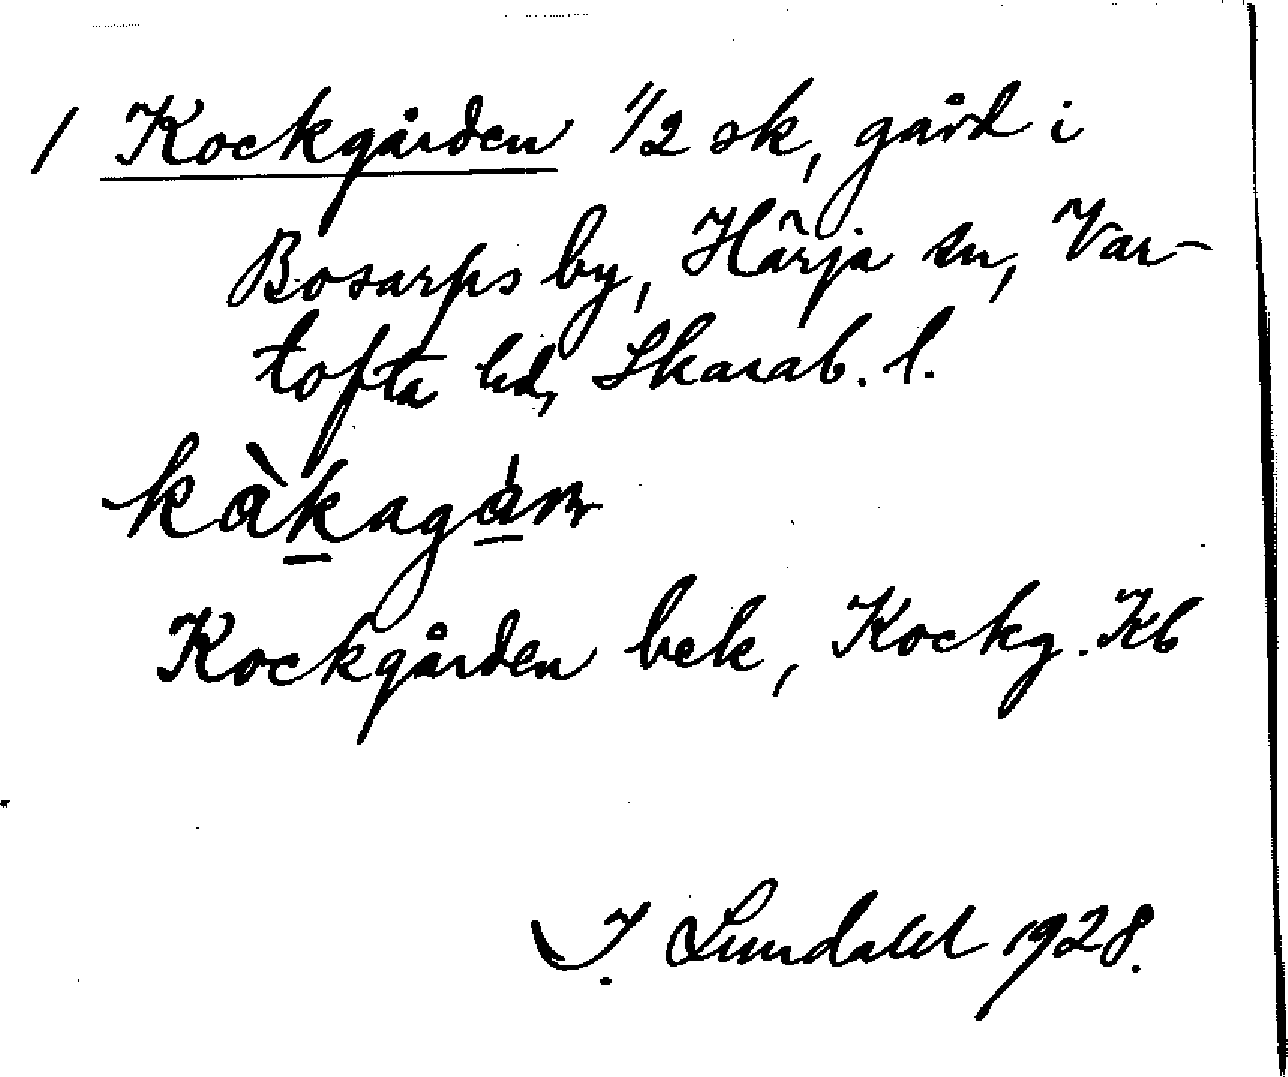 1 Kockgården 1/2 sk, gård i
Bosarps by, Härja sn, Var-
tofta hd, Skarab. l.
kàkagán
Kockgården bek, Kockg. Kb
I. Lundahl 1928.